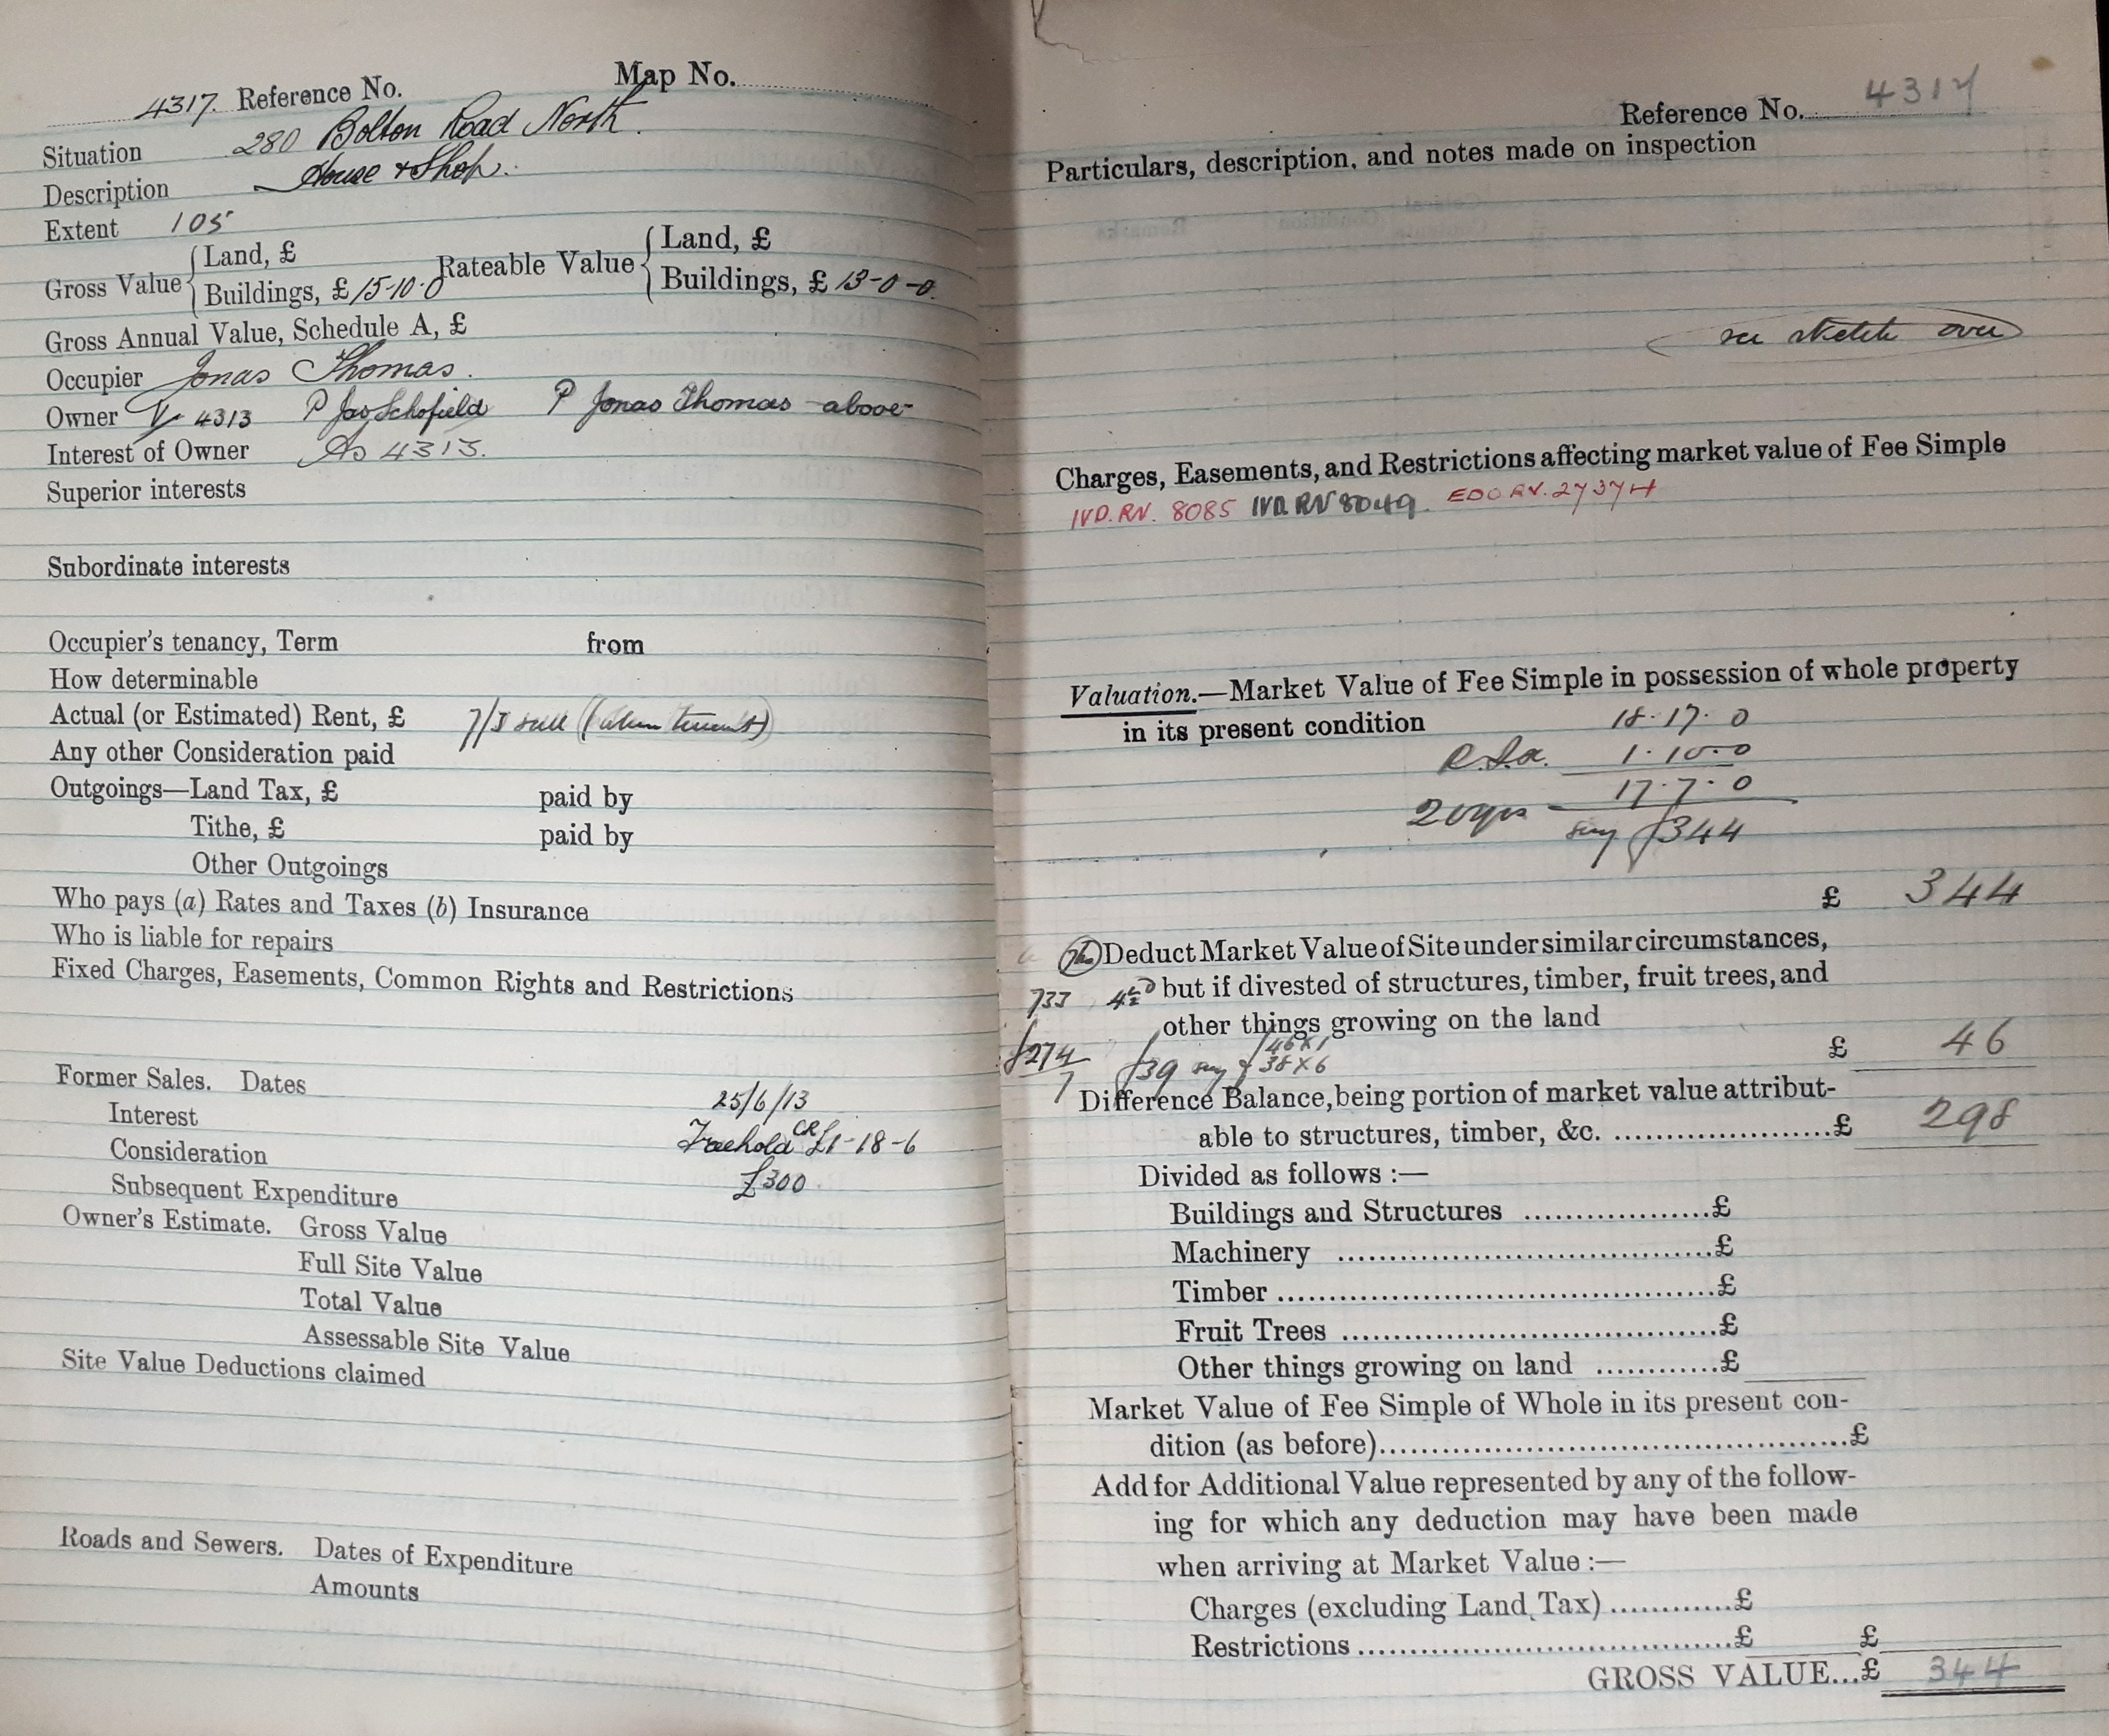 4317. Reference No. Map No.
Situation 280 Bolton Road North.
Description House & Shop.
Extent 105
Gross Value { Land, £ Rateable Value { Land, £
Buildings, £ 15-10-0 Buildings, £ 13-0-0.
Gross Annual Value, Schedule A, £
Occupier Jonas Thomas.
Owner 4313 P Jas Schofield P Jonas Thomas above
Interest of Owner As 4313.
Superior interests
Subordinate interests
Occupier's tenancy, Term from
How determinable
Actual (or Estimated) Rent, £ 7/3
Any other Consideration paid
Outgoings—Land Tax, £ paid by
Tithe, £ paid by
Other Outgoings
Who pays (a) Rates and Taxes (b) Insurance
Who is liable for repairs
Fixed Charges, Easements, Common Rights and Restrictions
Former Sales. Dates 25/6/13
Interest Freehold CR £1-18-6
Consideration £300
Subsequent Expenditure
Owner's Estimate. Gross Value
Full Site Value
Total Value
Assessable Site Value
Site Value Deductions claimed
Roads and Sewers. Dates of Expenditure
Amounts
Reference No. 4317
Particulars, description, and notes made on inspection
see sketch over
Charges, Easements, and Restrictions affecting market value of Fee Simple
IVD. RN. 8085 IVD. RN 8049.
Valuation.—Market Value of Fee Simple in possession of whole property
in its present condition 18.17.0
1.10.0
17.7.0
20yrs say £344
£ 344
Deduct Market Value of Site under similar circumstances,
733 4½d but if divested of structures, timber, fruit trees, and
other things growing on the land
£274 £39 say £ 46 x 1 £ 46
7 38 x 6
Difference Balance, being portion of market value attribut-
able to structures, timber, &c. £ 298
Divided as follows :—
Buildings and Structures £
Machinery £
Timber £
Fruit Trees £
Other things growing on land £
Market Value of Fee Simple of Whole in its present con-
dition (as before) £
Add for Additional Value represented by any of the follow-
ing for which any deduction may have been made
when arriving at Market Value :—
Charges (excluding Land Tax) £
Restrictions £ £
GROSS VALUE...£ 344